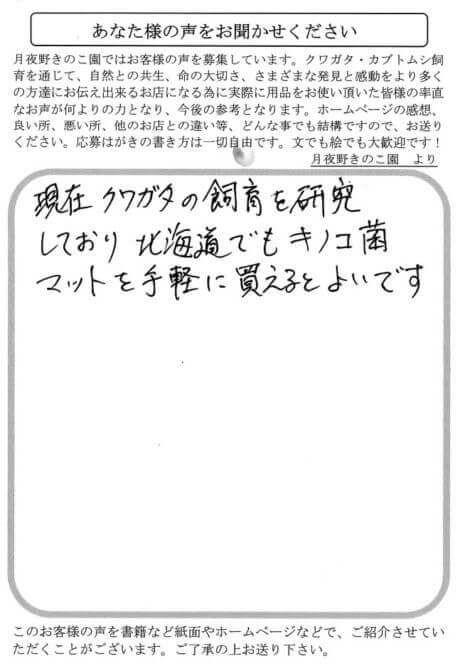 あなた様の声をお聞かせください
月夜野きのこ園ではお客様の声を募集しています。クワガタ・カブトムシ飼
育を通じて、自然との共生、命の大切さ、さまざまな発見と感動をより多く
の方達にお伝え出来るお店になる為に実際に用品をお使い頂いた皆様の率直
なお声が何よりの力となり、今後の参考となります。ホームページの感想、
良い所、悪い所、他のお店との違い等、どんな事でも結構ですので、お送り
ください。応募はがきの書き方は一切自由です。文でも絵でも大歓迎です！
月夜野きのこ園　より
現在 クワガタの飼育を研究
しており 北海道でもキノコ菌
マットを手軽に買えるとよいです
このお客様の声を書籍など紙面やホームページなどで、ご紹介させてい
ただくことがございます。ご了承の上お送り下さい。